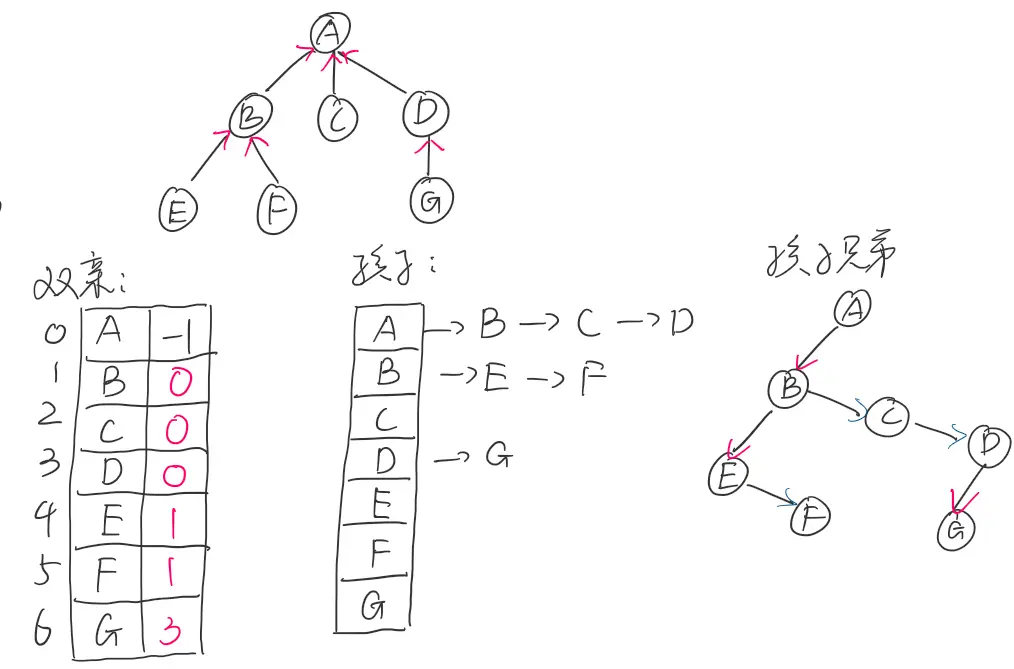 A
B C D
E F G
双亲:
0 A -1
1 B 0
2 C 0
3 D 0
4 E 1
5 F 1
6 G 3
孩子:
A → B → C → D
B → E → F
C
D → G
E
F
G
孩子兄弟
A
B
C
D
E
F
G